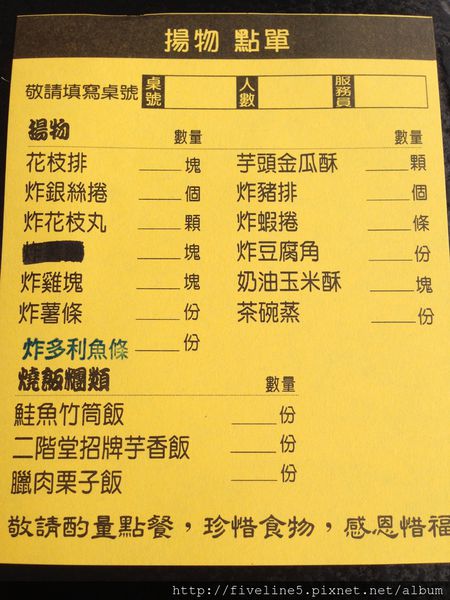 揚物 點單
敬請填寫桌號 桌號 人數 服務員
揚物 數量 數量
花枝排 ____塊 芋頭金瓜酥 ____顆
炸銀絲捲 ____個 炸豬排 ____個
炸花枝丸 ____顆 炸蝦捲 ____條
____塊 炸豆腐角 ____份
炸雞塊 ____塊 奶油玉米酥 ____塊
炸薯條 ____份 茶碗蒸 ____份
炸多利魚條 ____份
燒飯爛類 數量
鮭魚竹筒飯 ____份
二階堂招牌芋香飯 ____份
臘肉栗子飯 ____份
敬請酌量點餐，珍惜食物，感恩惜福
http://fiveline5.pixnet.net/album